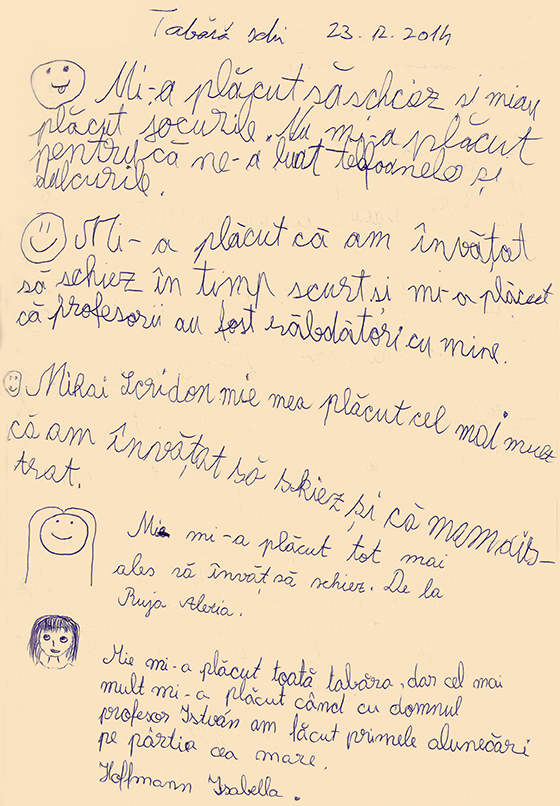 Tabără schi 23.12.2014
Mi-a plăcut să schiez și miau
plăcut jocurile. Nu mi-a plăcut
pentru că ne-a luat telfoanele și
dulcurile.
Mi-a plăcut că am învățat
să schiez în timp scurt si mi-a plăcut
că profesorii au fost răbdători cu mine.
Mihai Scridon mie mea plăcut cel mai mult
că am învățat să skiez și că
trat.
Mie mi-a plăcut tot mai
ales să învăț să schiez. De la
Ruja Alexia.
Mie mi-a plăcut toată tabăra, dar cel mai
mult mi-a plăcut când cu domnul
profesor István am făcut primele alunecări
pe pârtia cea mare.
Hoffmann Isabella.